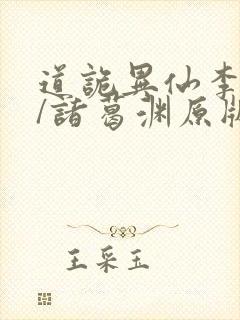 道詭異仙李
/諸葛渊原版
王采玉